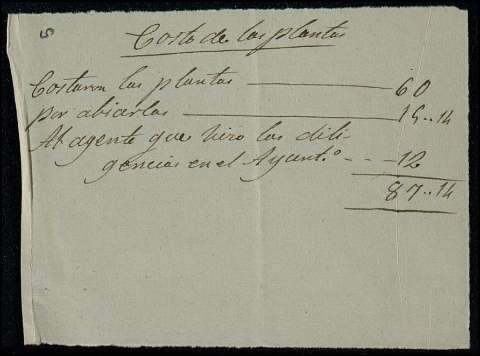 5
Costo de las plantas
Costaron las plantas 60
por abiarlas 15..14
Al agente que hizo las dili
gencias en el Ayunt.o - - - 12
87..14